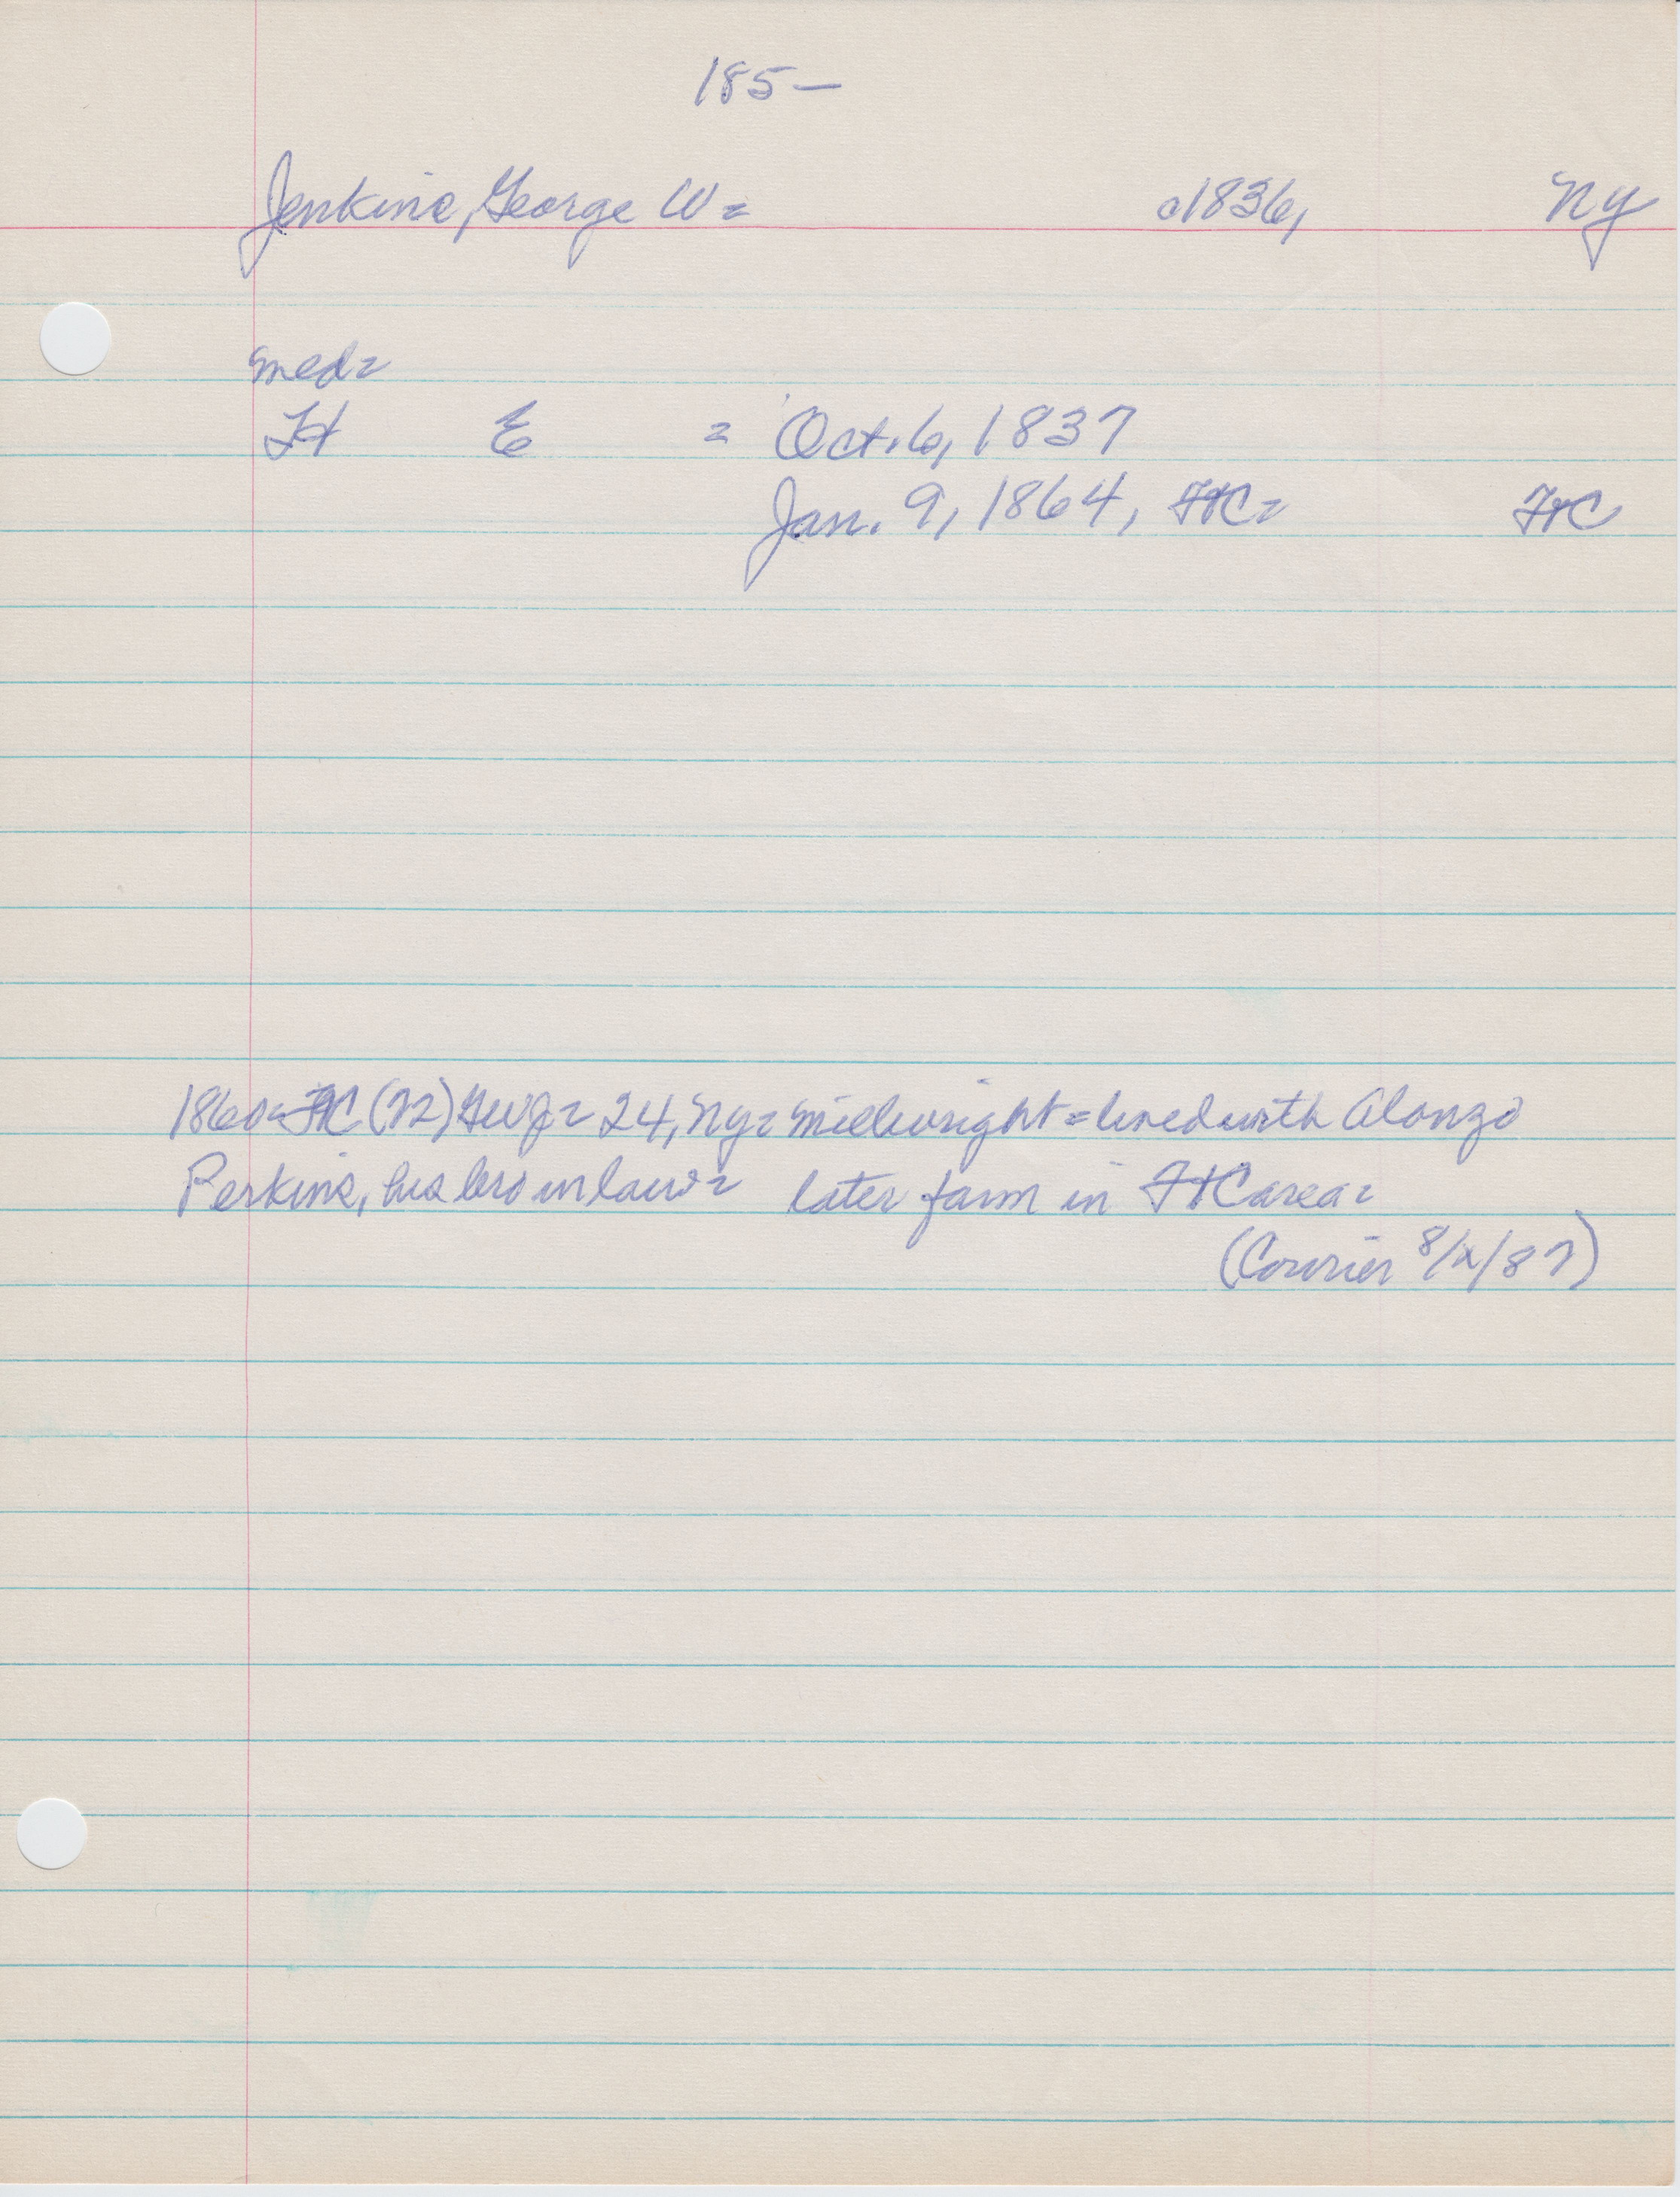 185-
Jenkins, George W= c1836, NY
med=
H E = Oct. 6, 1837
Jan. 9, 1864, FtC= FtC
1860= FtC (22) GWJ= 24, NY= millwright = lived with Alonzo
Perkins, his bro in law= later farm in FtC area=
(Courier 8/x/87)